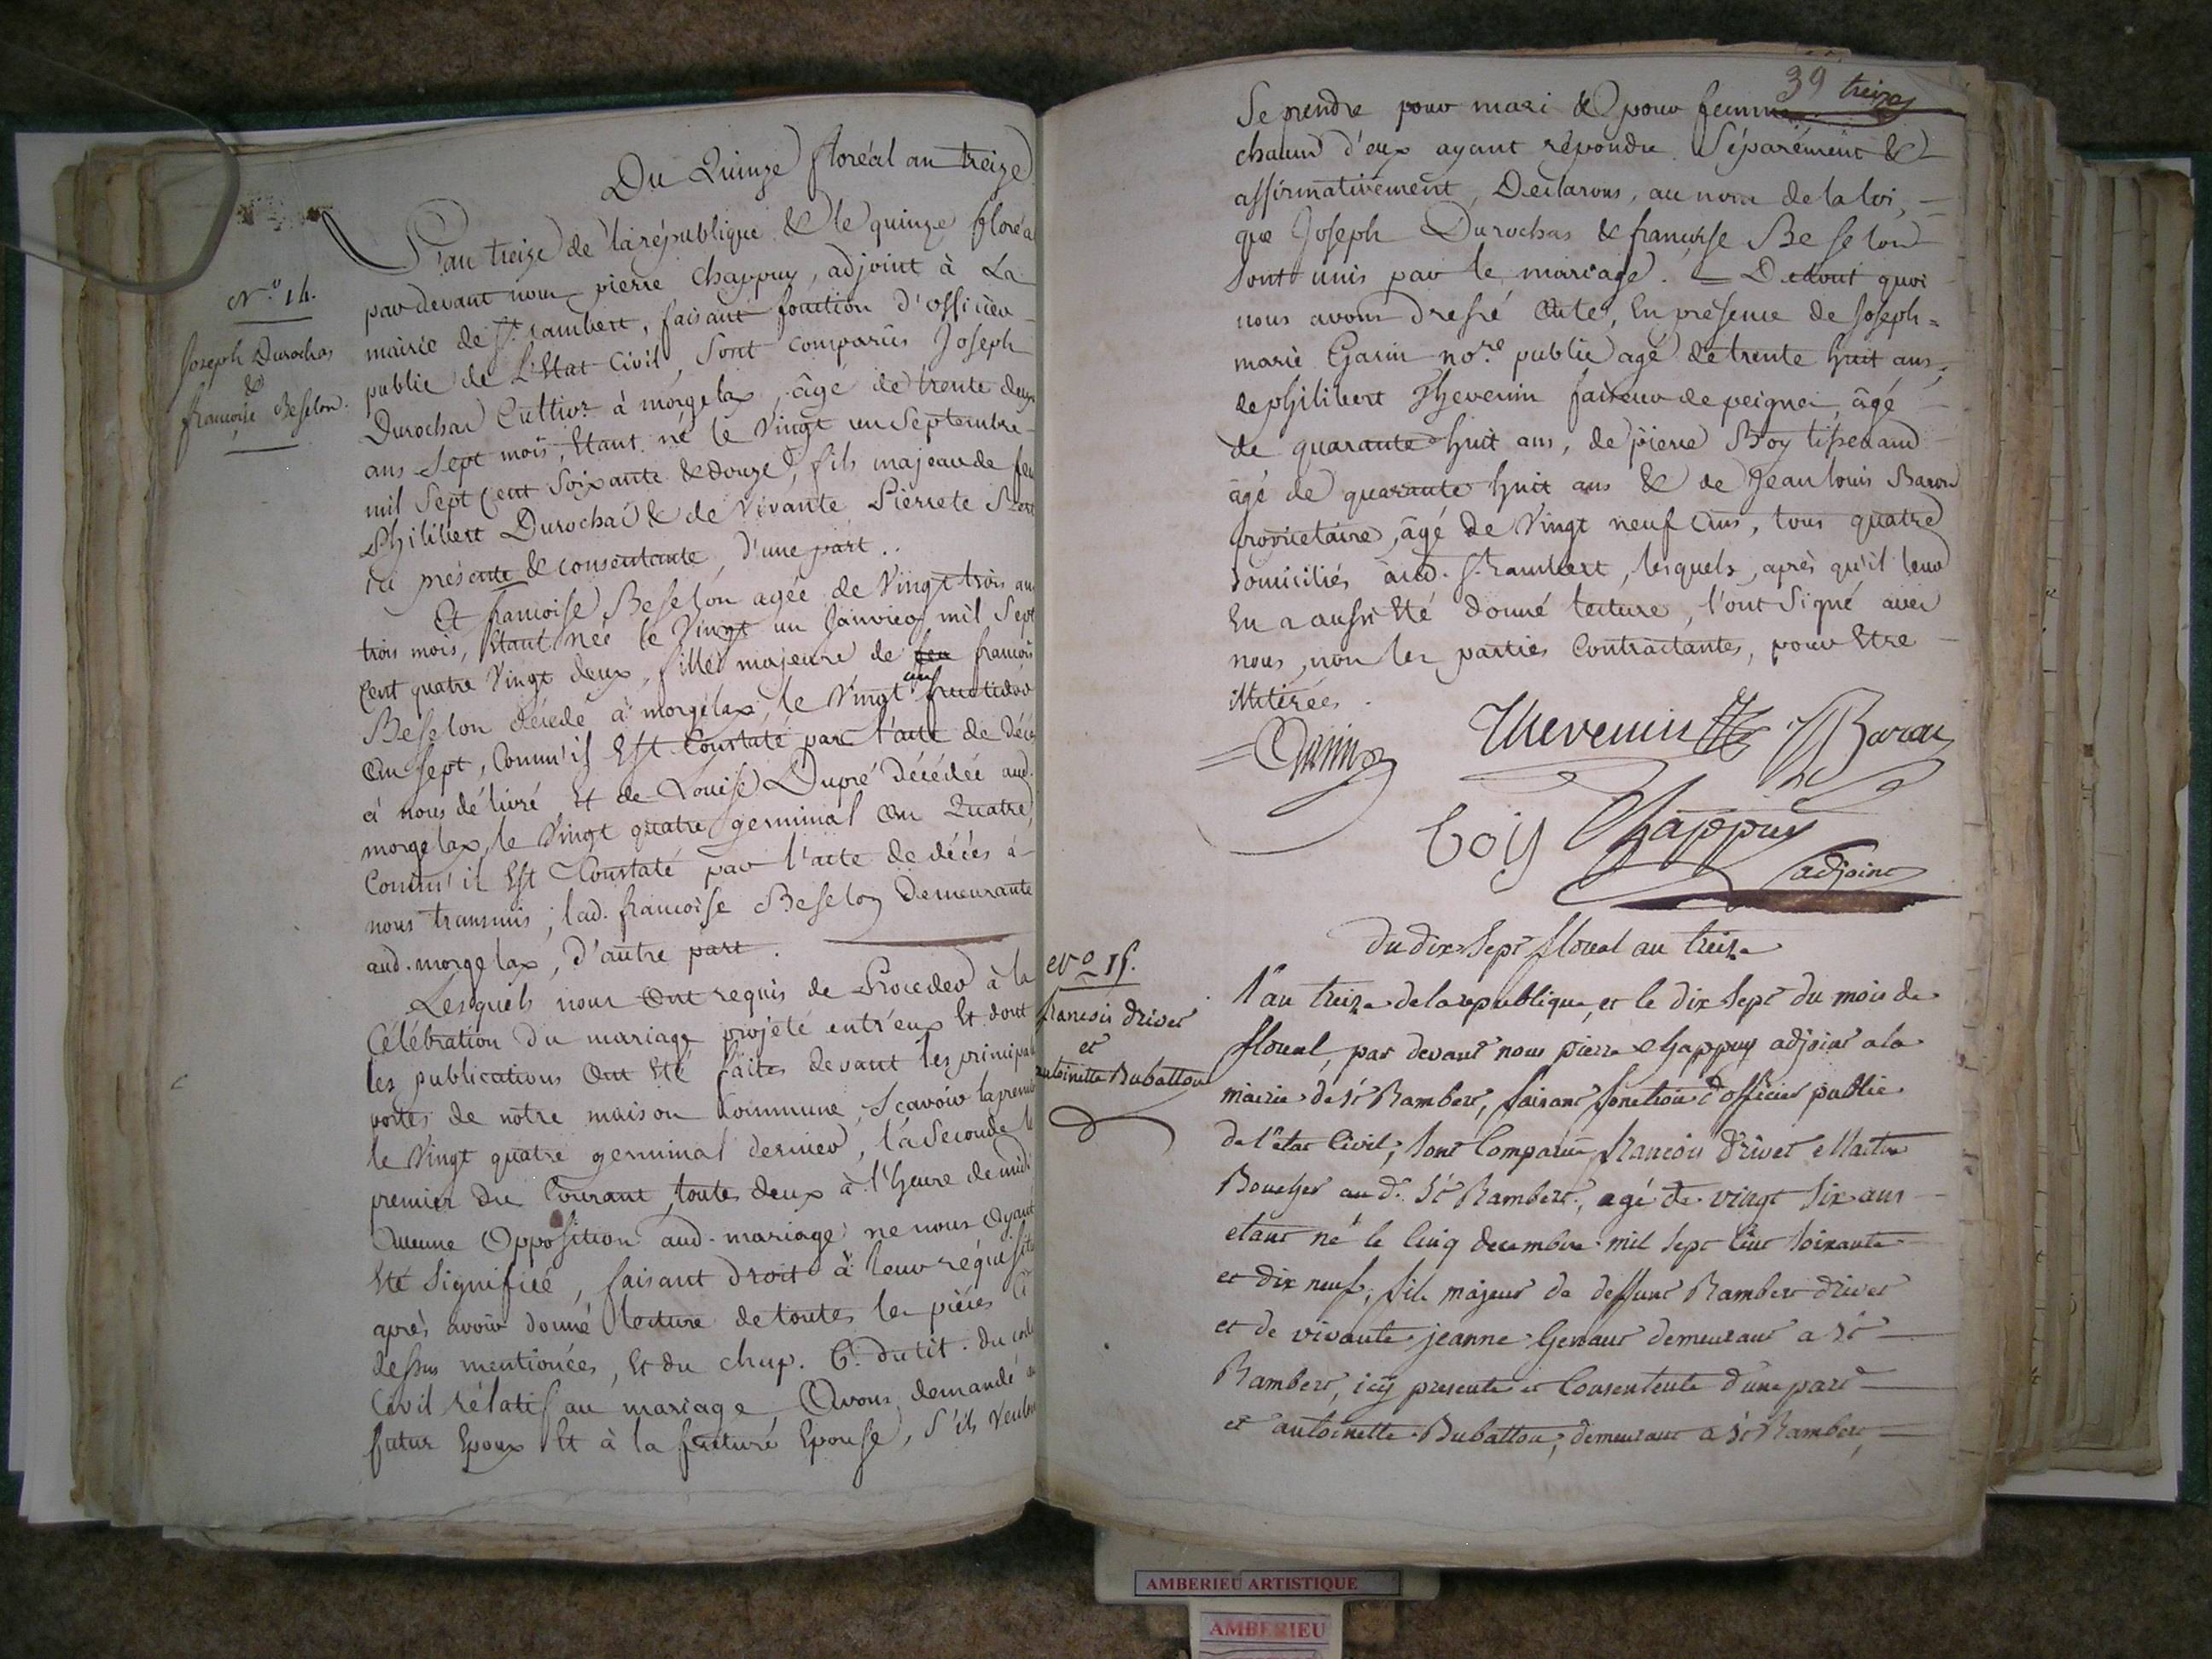 Du Quinze floréal an treize
N.o 14.
Joseph Durochas
&
françoise Beselon.
L'an treize de la république & le quinze floréal
pardevant nous pierre Chappuy, adjoint à La
mairie de St. rambert, faisant fonction d'officier
public de L'Etat Civil, Sont comparus Joseph
Durochas Cultivr. à morgelax, âgé de trente deux
ans Sept mois, Etant né le Vingt un Septembre
mil Sept Cent Soixante & douze, fils majeur de feu
Philibert Durochas & de Vivante Pierrete
ici présente & consentante, d'une part..
Et françoise Beselon agée de Vingt trois ans
trois mois, Etant née le Vingt un Janvier mil Sept
Cent quatre Vingt deux, fille majeure de feu françois
Beselon décédé à morgelax le Vingt un fructidor
an Sept, Comm'il Est Constaté par l'acte de décès
à nous délivré Et de Louise Dupré décédée aud.
morgelax, le Vingt quatre germinal an Quatre,
Comm'il Est Constaté par l'acte de décès à
nous transmis; lad. françoise Beselon Demeurante
aud. morgelax, d'autre part.
Lesquels nous Ont requis de Proceder à la
Célébration du mariage projeté entr'eux Et dont
les publications Ont Eté faites devant les principales
portes de nôtre maison Commune, Sçavoir la premiere
le Vingt quatre germinal dernier, la Seconde le
premier du Courant, toutes deux à l'heure de midi
Aucune Opposition aud. mariage ne nous Ayant
Eté Signifiée, faisant droit à leur réquisition
après avoir donné lecture de toutes les pièces Ci
dessus mentionées, Et du chap. 6. du tit. du code
Civil rélatif au mariage, Avons demandé au
futur Epoux Et à la future Epouse, S'ils Veulent
39 treize
Se prendre pour mari & pour femme
chacun d'eux ayant répondu Séparément &
affirmativement, Declarons, au nom de la loi,
que Joseph Durochas & françoise Beselon
Sont unis par le mariage. Detout quoi
nous avons dressé Acte, En présence de Joseph-
marie Garin nore. public agé de trente huit ans;
de philibert Thevenin faiseur de peignes, âgé
de quarante huit ans, de pierre Boy tisserand
âgé de quarante huit ans & de Jean louis Baron
propriétaire, âgé de Vingt neuf ans, tous quatre
domiciliés aud. St. rambert, lesquels, après qu'il leur
En a aussi Eté donné lecture, l'ont Signé avec
nous, non les parties Contractantes, pour Etre
illitérées.
Garin Thevenin JL Baron
boiy Chappuy
adjoint
du dix sept floreal an treize
N.o 15.
francois drivet
et
antoinette Dubattou
l'an treize de la republique, et le dix Sept du mois de
floreal, par devant nous pierre Chappuy adjoint a la
mairie de St Rambert, faisant fonction d'officier public
de l'etat Civil; Sont Comparus francois drivet Maitre
Boucher aud. St Rambert, agé de vingt Six ans
etant né le Cinq decembre mil Sept Cent Soixante
et dix neuf; fils majeur de deffunt Rambert drivet
et de vivante jeanne Genaud demeurant a St
Rambert, icy presente et Consentente d'une part
et antoinette Dubattou; demeurant a St Rambert,
AMBERIEU ARTISTIQUE
AMBERIEU